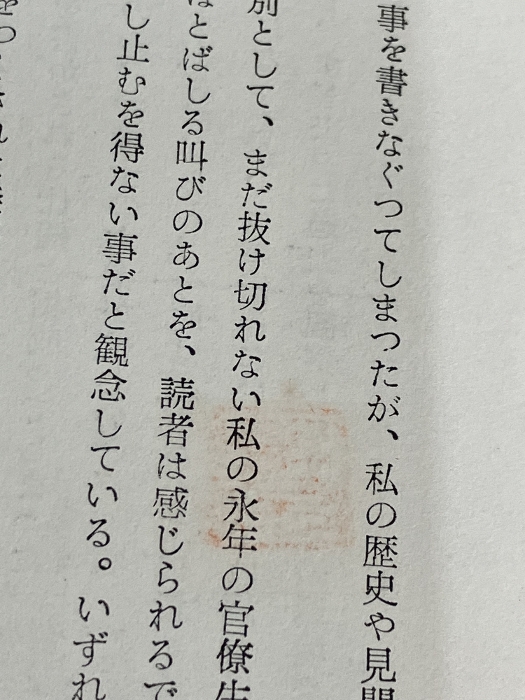 事を書きなぐつてしまつたが、私の歴史や見聞
別として、まだ抜け切れない私の永年の官僚生
ほとばしる叫びのあとを、読者は感じられるで
し止むを得ない事だと観念している。いずれ